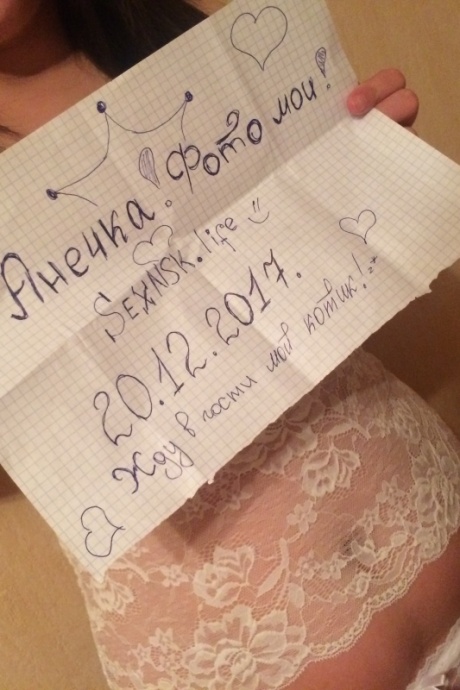 Анечка. Фото мои!
SEXNSK.life
20.12.2017.
Жду в гости мой котик!